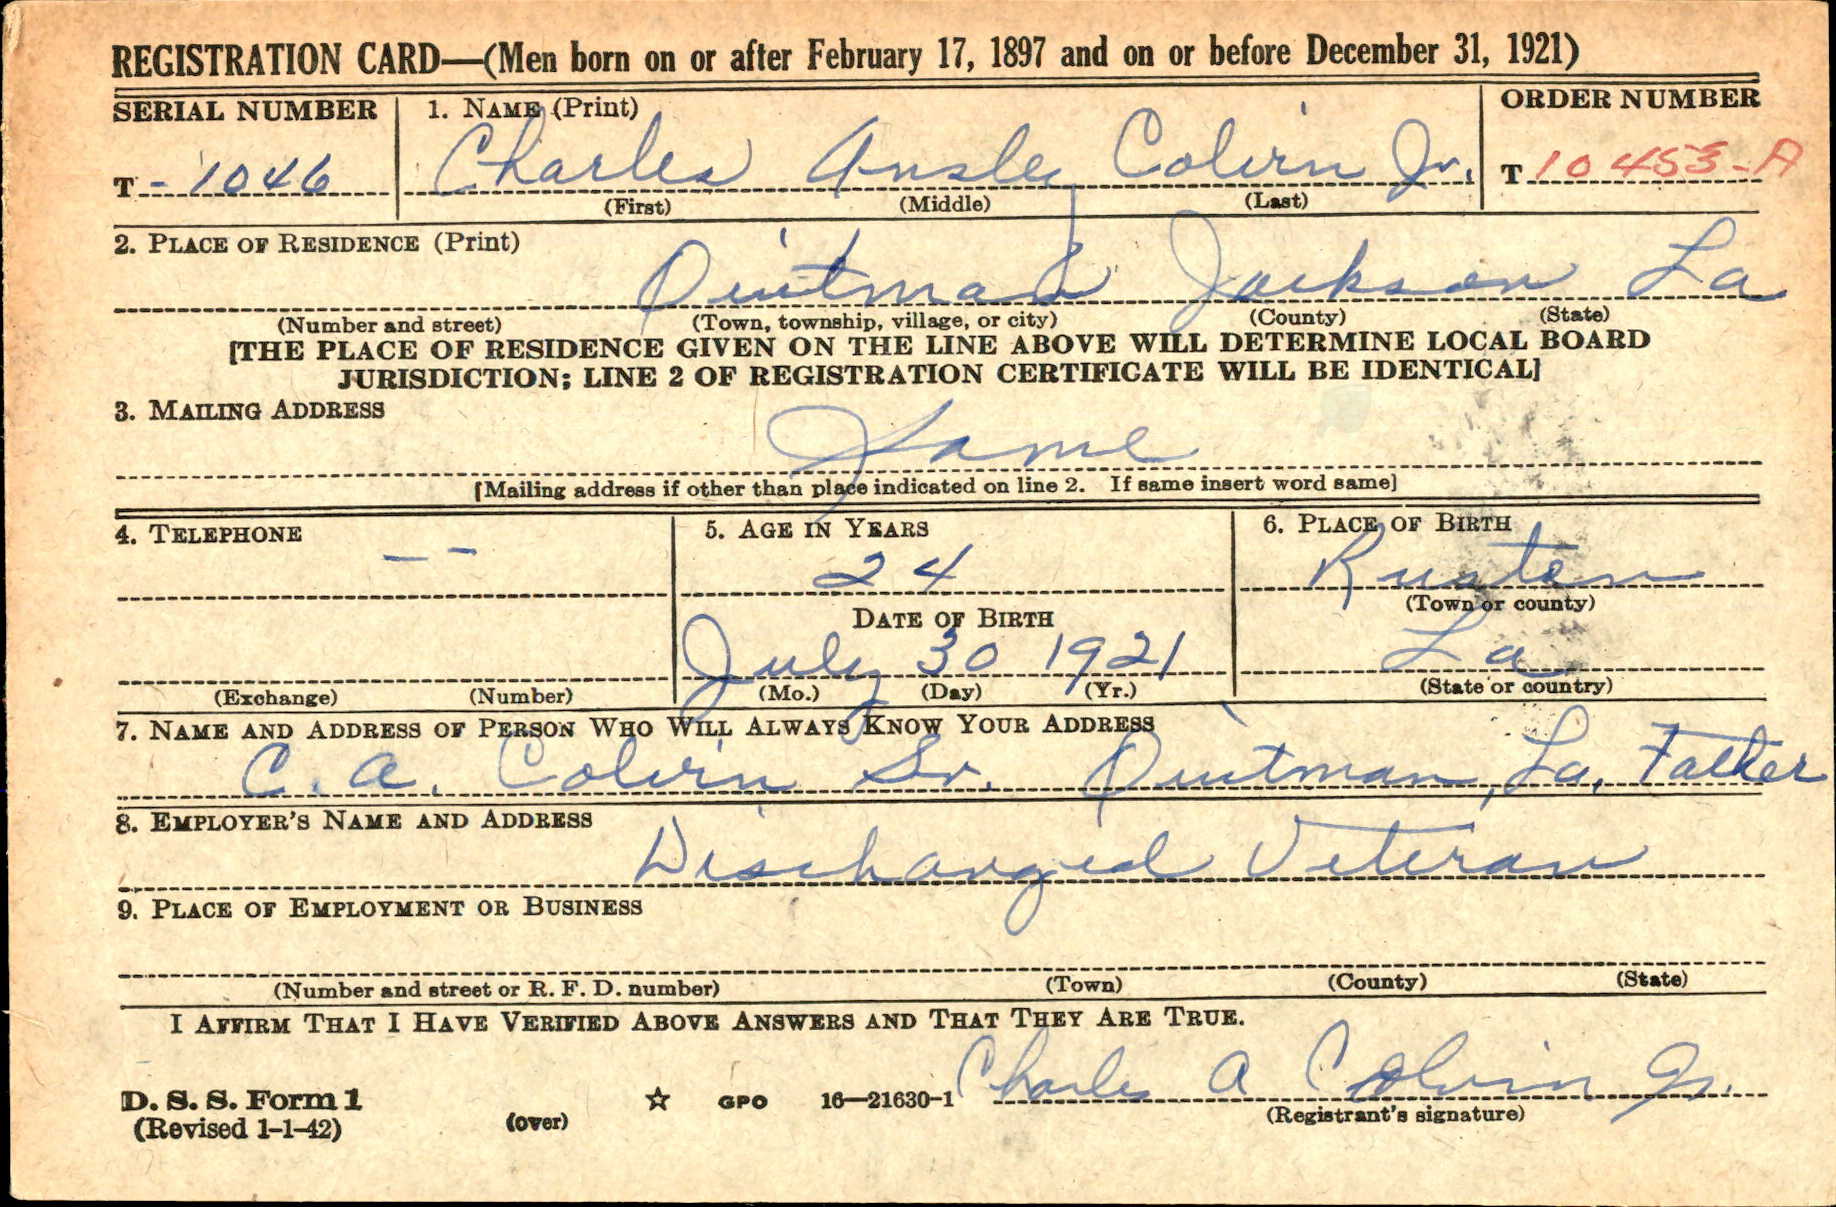 REGISTRATION CARD—(Men born on or after February 17, 1897 and on or before December 31, 1921)
SERIAL NUMBER 1. NAME (Print) ORDER NUMBER
T - 1046 Charles Ansley Colvin Jr. T 10453-A
(First) (Middle) (Last)
2. PLACE OF RESIDENCE (Print)
Quitman Jackson La
(Number and street) (Town, township, village, or city) (County) (State)
[THE PLACE OF RESIDENCE GIVEN ON THE LINE ABOVE WILL DETERMINE LOCAL BOARD
JURISDICTION; LINE 2 OF REGISTRATION CERTIFICATE WILL BE IDENTICAL]
3. MAILING ADDRESS
Same
[Mailing address if other than place indicated on line 2. If same insert word same]
4. TELEPHONE 5. AGE IN YEARS 6. PLACE OF BIRTH
— — 24 Ruston
(Town or county)
DATE OF BIRTH
July 30 1921 La
(Exchange) (Number) (Mo.) (Day) (Yr.) (State or country)
7. NAME AND ADDRESS OF PERSON WHO WILL ALWAYS KNOW YOUR ADDRESS
C. A. Colvin Sr. Quitman, La, Father
8. EMPLOYER'S NAME AND ADDRESS
Discharged Veteran
9. PLACE OF EMPLOYMENT OR BUSINESS
(Number and street or R. F. D. number) (Town) (County) (State)
I AFFIRM THAT I HAVE VERIFIED ABOVE ANSWERS AND THAT THEY ARE TRUE.
Charles A Colvin Jr.
D. S. S. Form 1 ☆ GPO 16—21630-1
(Revised 1-1-42) (over) (Registrant's signature)